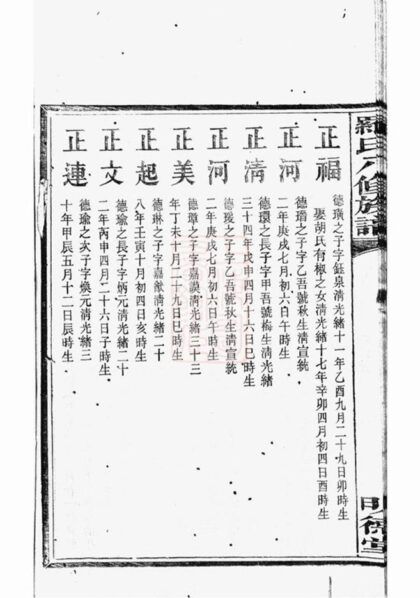 羅氏八修族譜
正福
德璜之子字鈺泉清光緒十一年乙酉九月二十九日卯時生
娶胡氏有椒之女清光緒十七年辛卯四月初四日酉時生
正河
德瑠之子字乙吾號秋生清宣統
二年庚戌七月初六日午時生
正清
德環之長子字甲吾號梅生清光緒
三十四年戊申四月十六日巳時生
正河
德瓏之子字乙吾號秋生清宣統
二年庚戌七月初六日午時生
正美
德璋之子字嘉謨清光緒三十三
年丁未十月二十九日巳時生
正起
德琳之子字嘉猷清光緒二十
八年壬寅十月初四日亥時生
正文
德瑜之長子字炳元清光緒二十
二年丙申四月二十六日子時生
正連
德瑜之次子字煥元清光緒三
十年甲辰五月十二日辰時生
明德堂